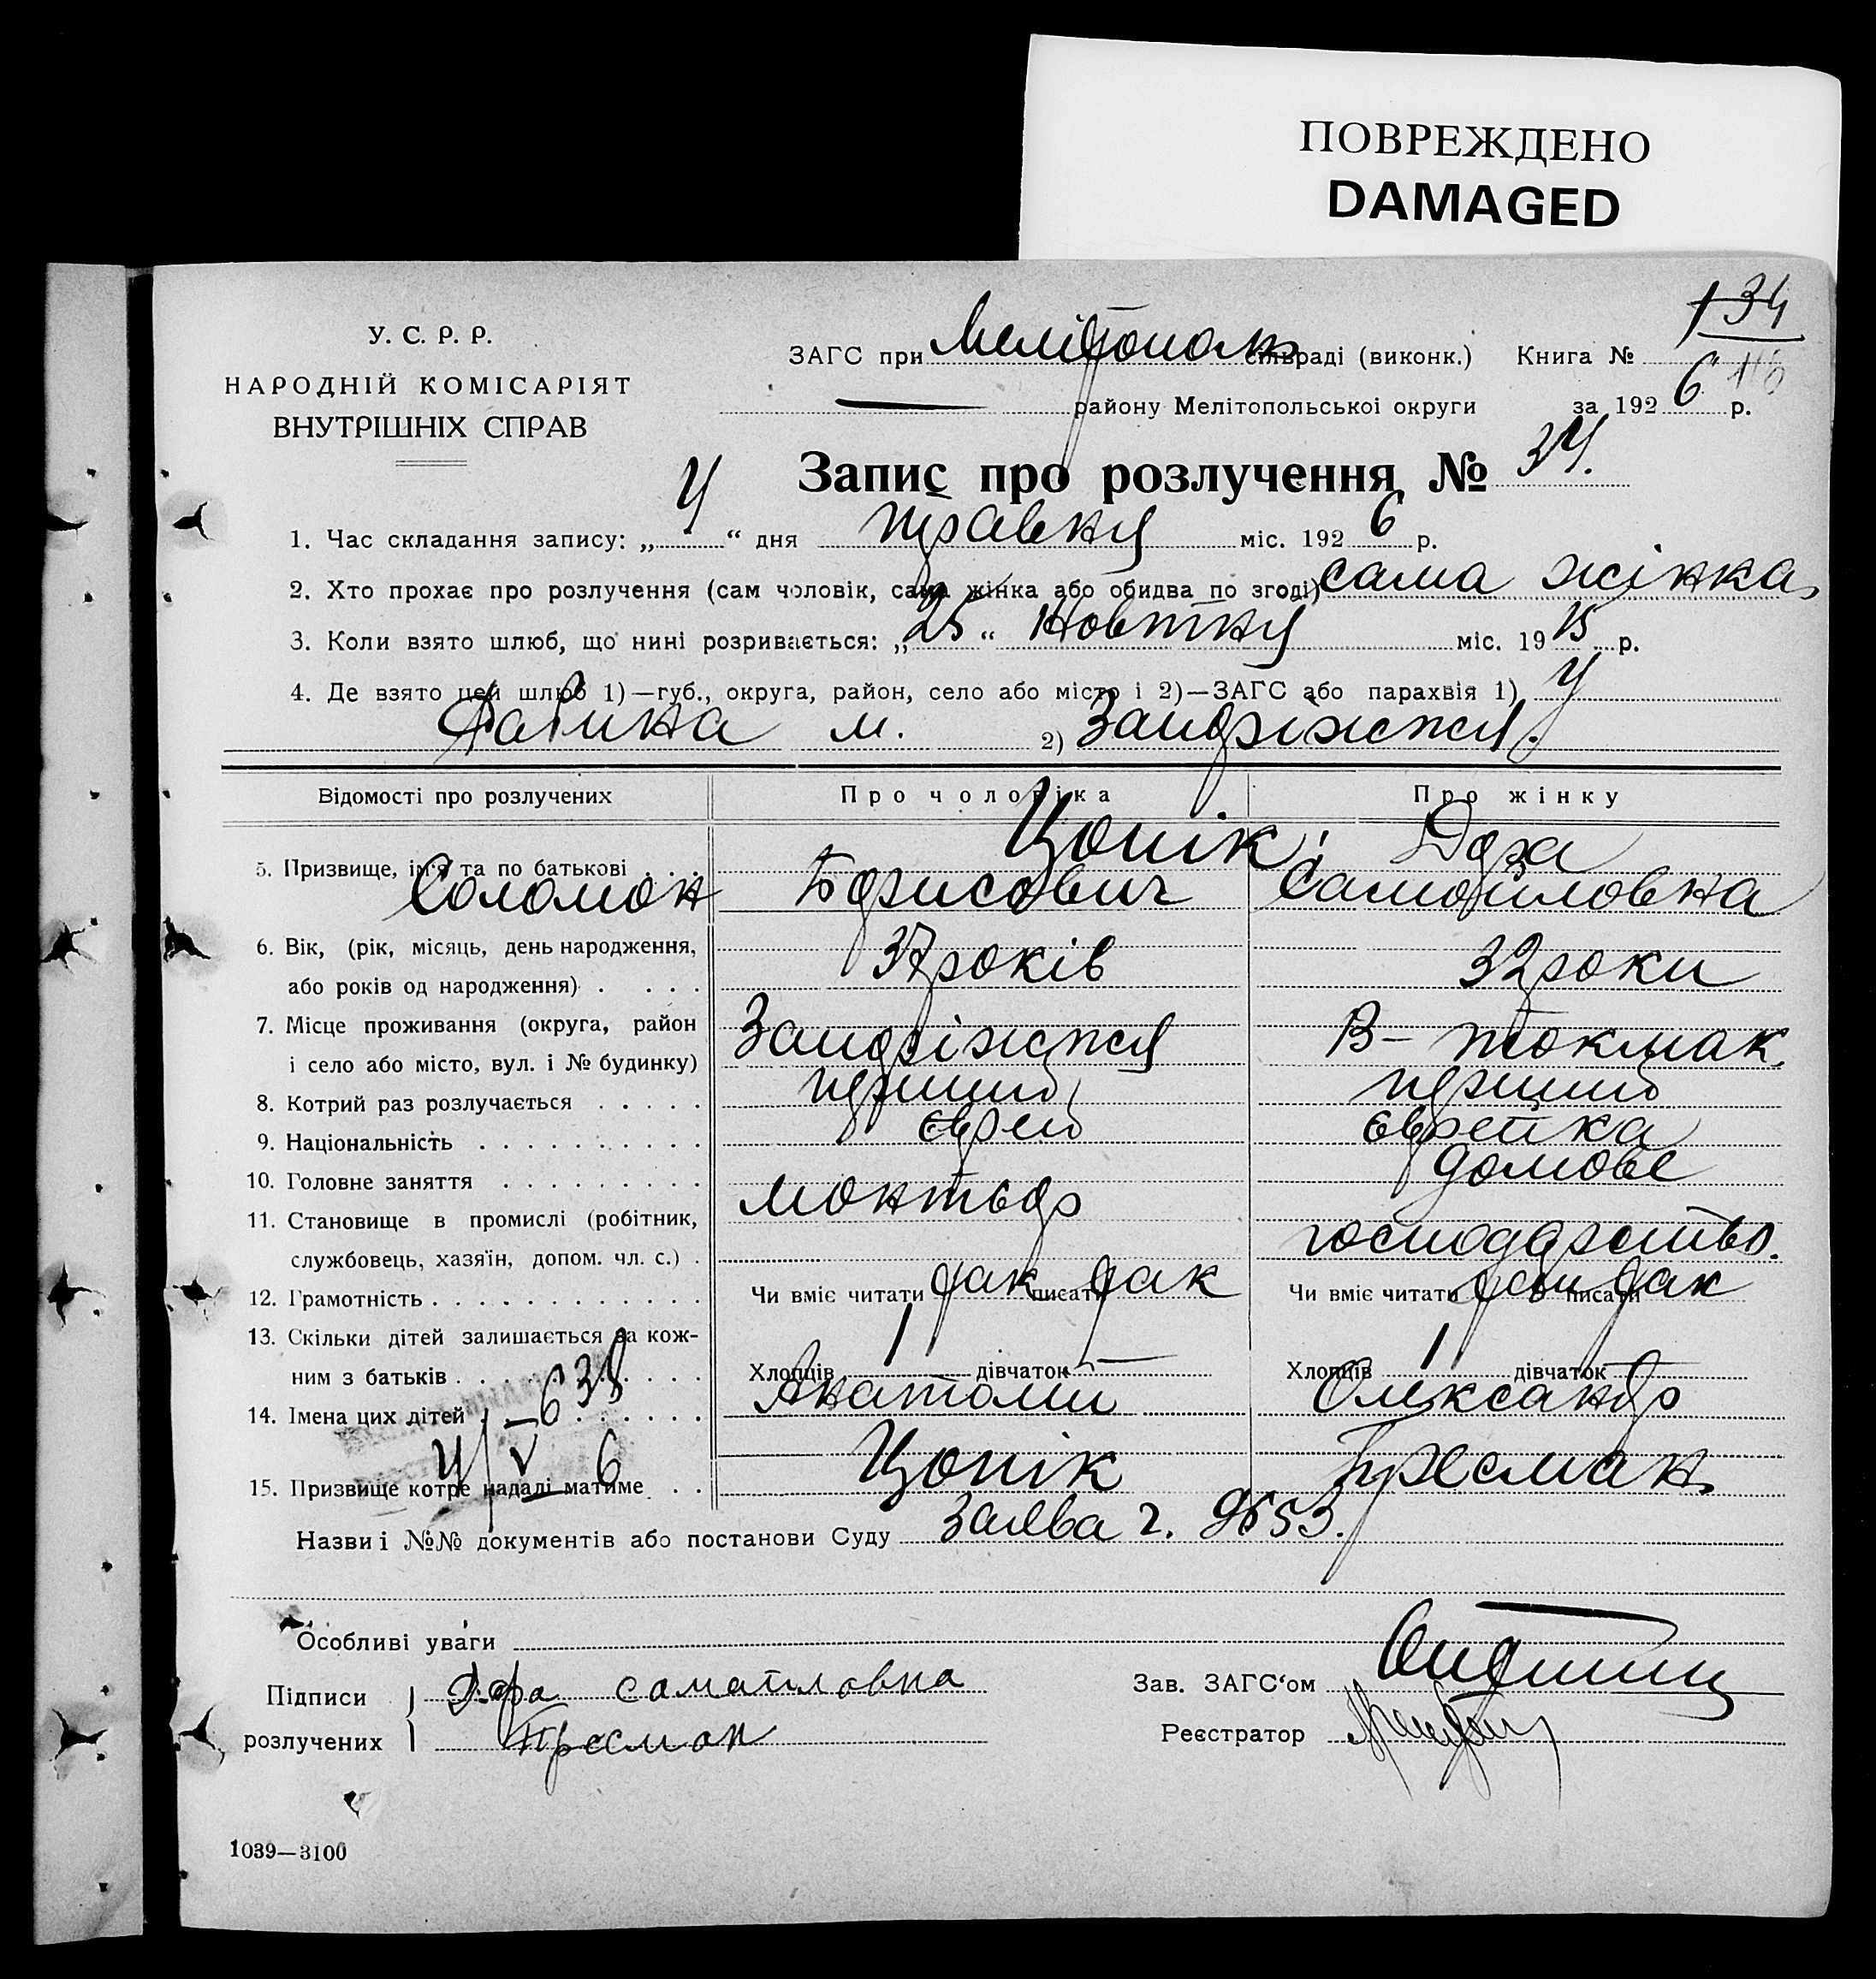 ПОВРЕЖДЕНО
DAMAGED
134
У. С. Р. Р.
НАРОДНІЙ КОМІСАРІЯТ
ВНУТРІШНІХ СПРАВ
ЗАГС при Мелітополь сільраді (виконк.) Книга № 116
— району Мелітопольської округи за 1926 р.
Запис про розлучення № 34.
1. Час складання запису: „4“ дня травня міс. 1926 р.
2. Хто прохає про розлучення (сам чоловік, сама жінка або обидва по згоді) сама жінка
3. Коли взято шлюб, що нині розривається: „25“ Жовтня міс. 1915 р.
4. Де взято цей шлюб 1)—губ., округа, район, село або місто і 2)—ЗАГС або парахвія 1) У
м. 2) Запоріжжя.
Відомості про розлучених Про чоловіка Про жінку
5. Призвище, ім'я та по батькові Цопік, Дора
Соломон Борисович Самойловна
6. Вік, (рік, місяць, день народження,
або років од народження) 37 років 32 роки
7. Місце проживання (округа, район
і село або місто, вул. і № будинку) Запоріжжя В-Токмак.
8. Котрий раз розлучається перший перший
9. Національність Єврей Єврейка
10. Головне заняття монтьор домове
11. Становище в промислі (робітник,
службовець, хазяїн, допом. чл. с.) господарство.
12. Грамотність Чи вміє читати так писати так Чи вміє читати так писати так
13. Скільки дітей залишається за кож-
ним з батьків Хлопців 1 дівчаток — Хлопців 1 дівчаток —
14. Імена цих дітей Анатолий Олександр
638
4/V 6
15. Призвище котре надалі матиме Цопік Пресман
Назви і №№ документів або постанови Суду Заява ч. 9653.
Особливі уваги
Підписи Дора самайловна
розлучених Пресман
Зав. ЗАГС‘ом
Реєстратор
1039—3100